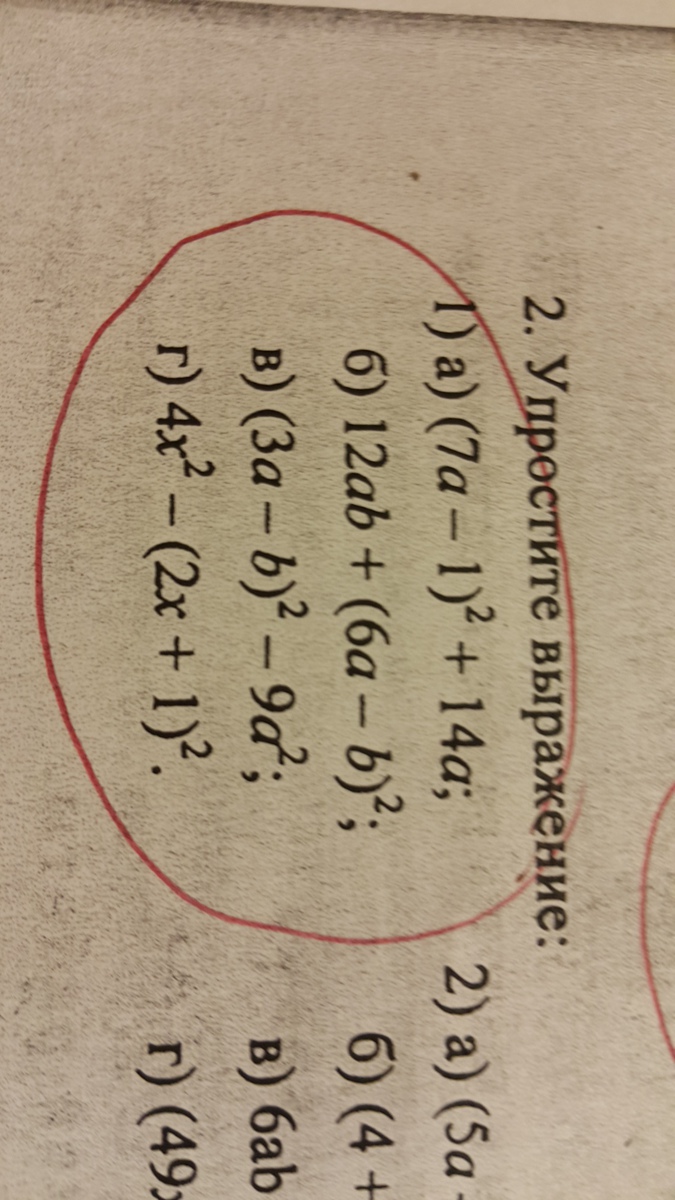 2. Упростите выражение:
1) а) (7a – 1)² + 14a;
б) 12ab + (6a – b)²;
в) (3a – b)² – 9a²;
г) 4x² – (2x + 1)².
2) а) (5a -
б) (4 +
в) 6ab
г) (49